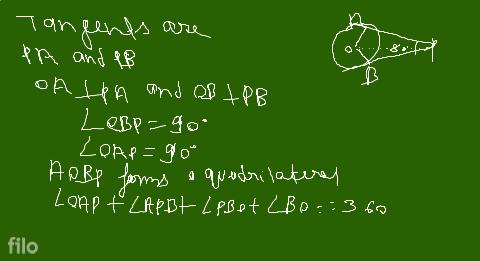 Tangents are
PA and PB
OA ⊥ PA and OB ⊥ PB
∠OBP = 90°
∠OAP = 90°
AOBP forms a quadrilateral
∠OAP + ∠APB + ∠PBO + ∠BO = 360
A
O 80 P
B
filo